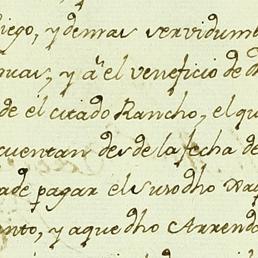 iego, y demas servidumb
nuas, y a el veneficio de
de el citado Rancho, el qu
cuentan desde la fecha de
ade pagar el Susodho
nto, y aquedho Arrenda